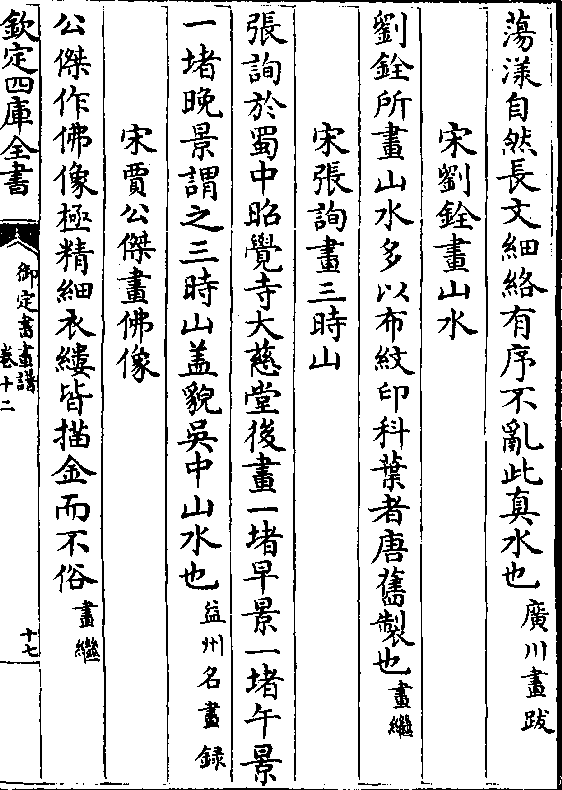 蕩漾自然長文細絡有序不亂此真水也廣川畫跋
宋劉銓畫山水
劉銓所畫山水多以布紋印科葉者唐舊製也畫繼
宋張詢畫三時山
張詢於蜀中昭覺寺大慈堂後畫一堵早景一堵午景
一堵晚景謂之三時山盖貌吳中山水也益州名畫錄
宋賈公傑畫佛像
公傑作佛像極精細衣縷皆描金而不俗畫繼
欽定四庫全書
御定書畫譜
卷十二
十七